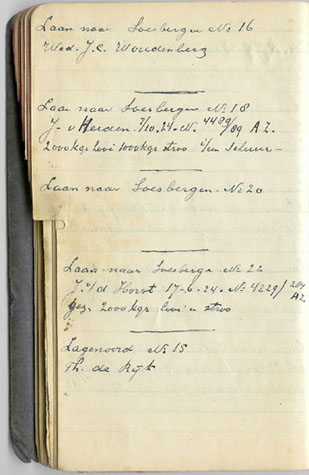 Laan naar Soesbergen No 16
Wed. J.C. Woudenberg
Laan naar Soesbergen No 18
J. v Heerden 7/10.24 - N. 4489/89 A Z.
2000 kgr hooi 1000 kgr stroo i/een schuur -
Laan naar Soesbergen - No 20
Laan naar Soesbergen No 22
J. v/d Horst 17-6-24 - No 4229/ 204 AZ
2000 kgr hooi en stroo
Lagenoord No 15
Th. de Rijk